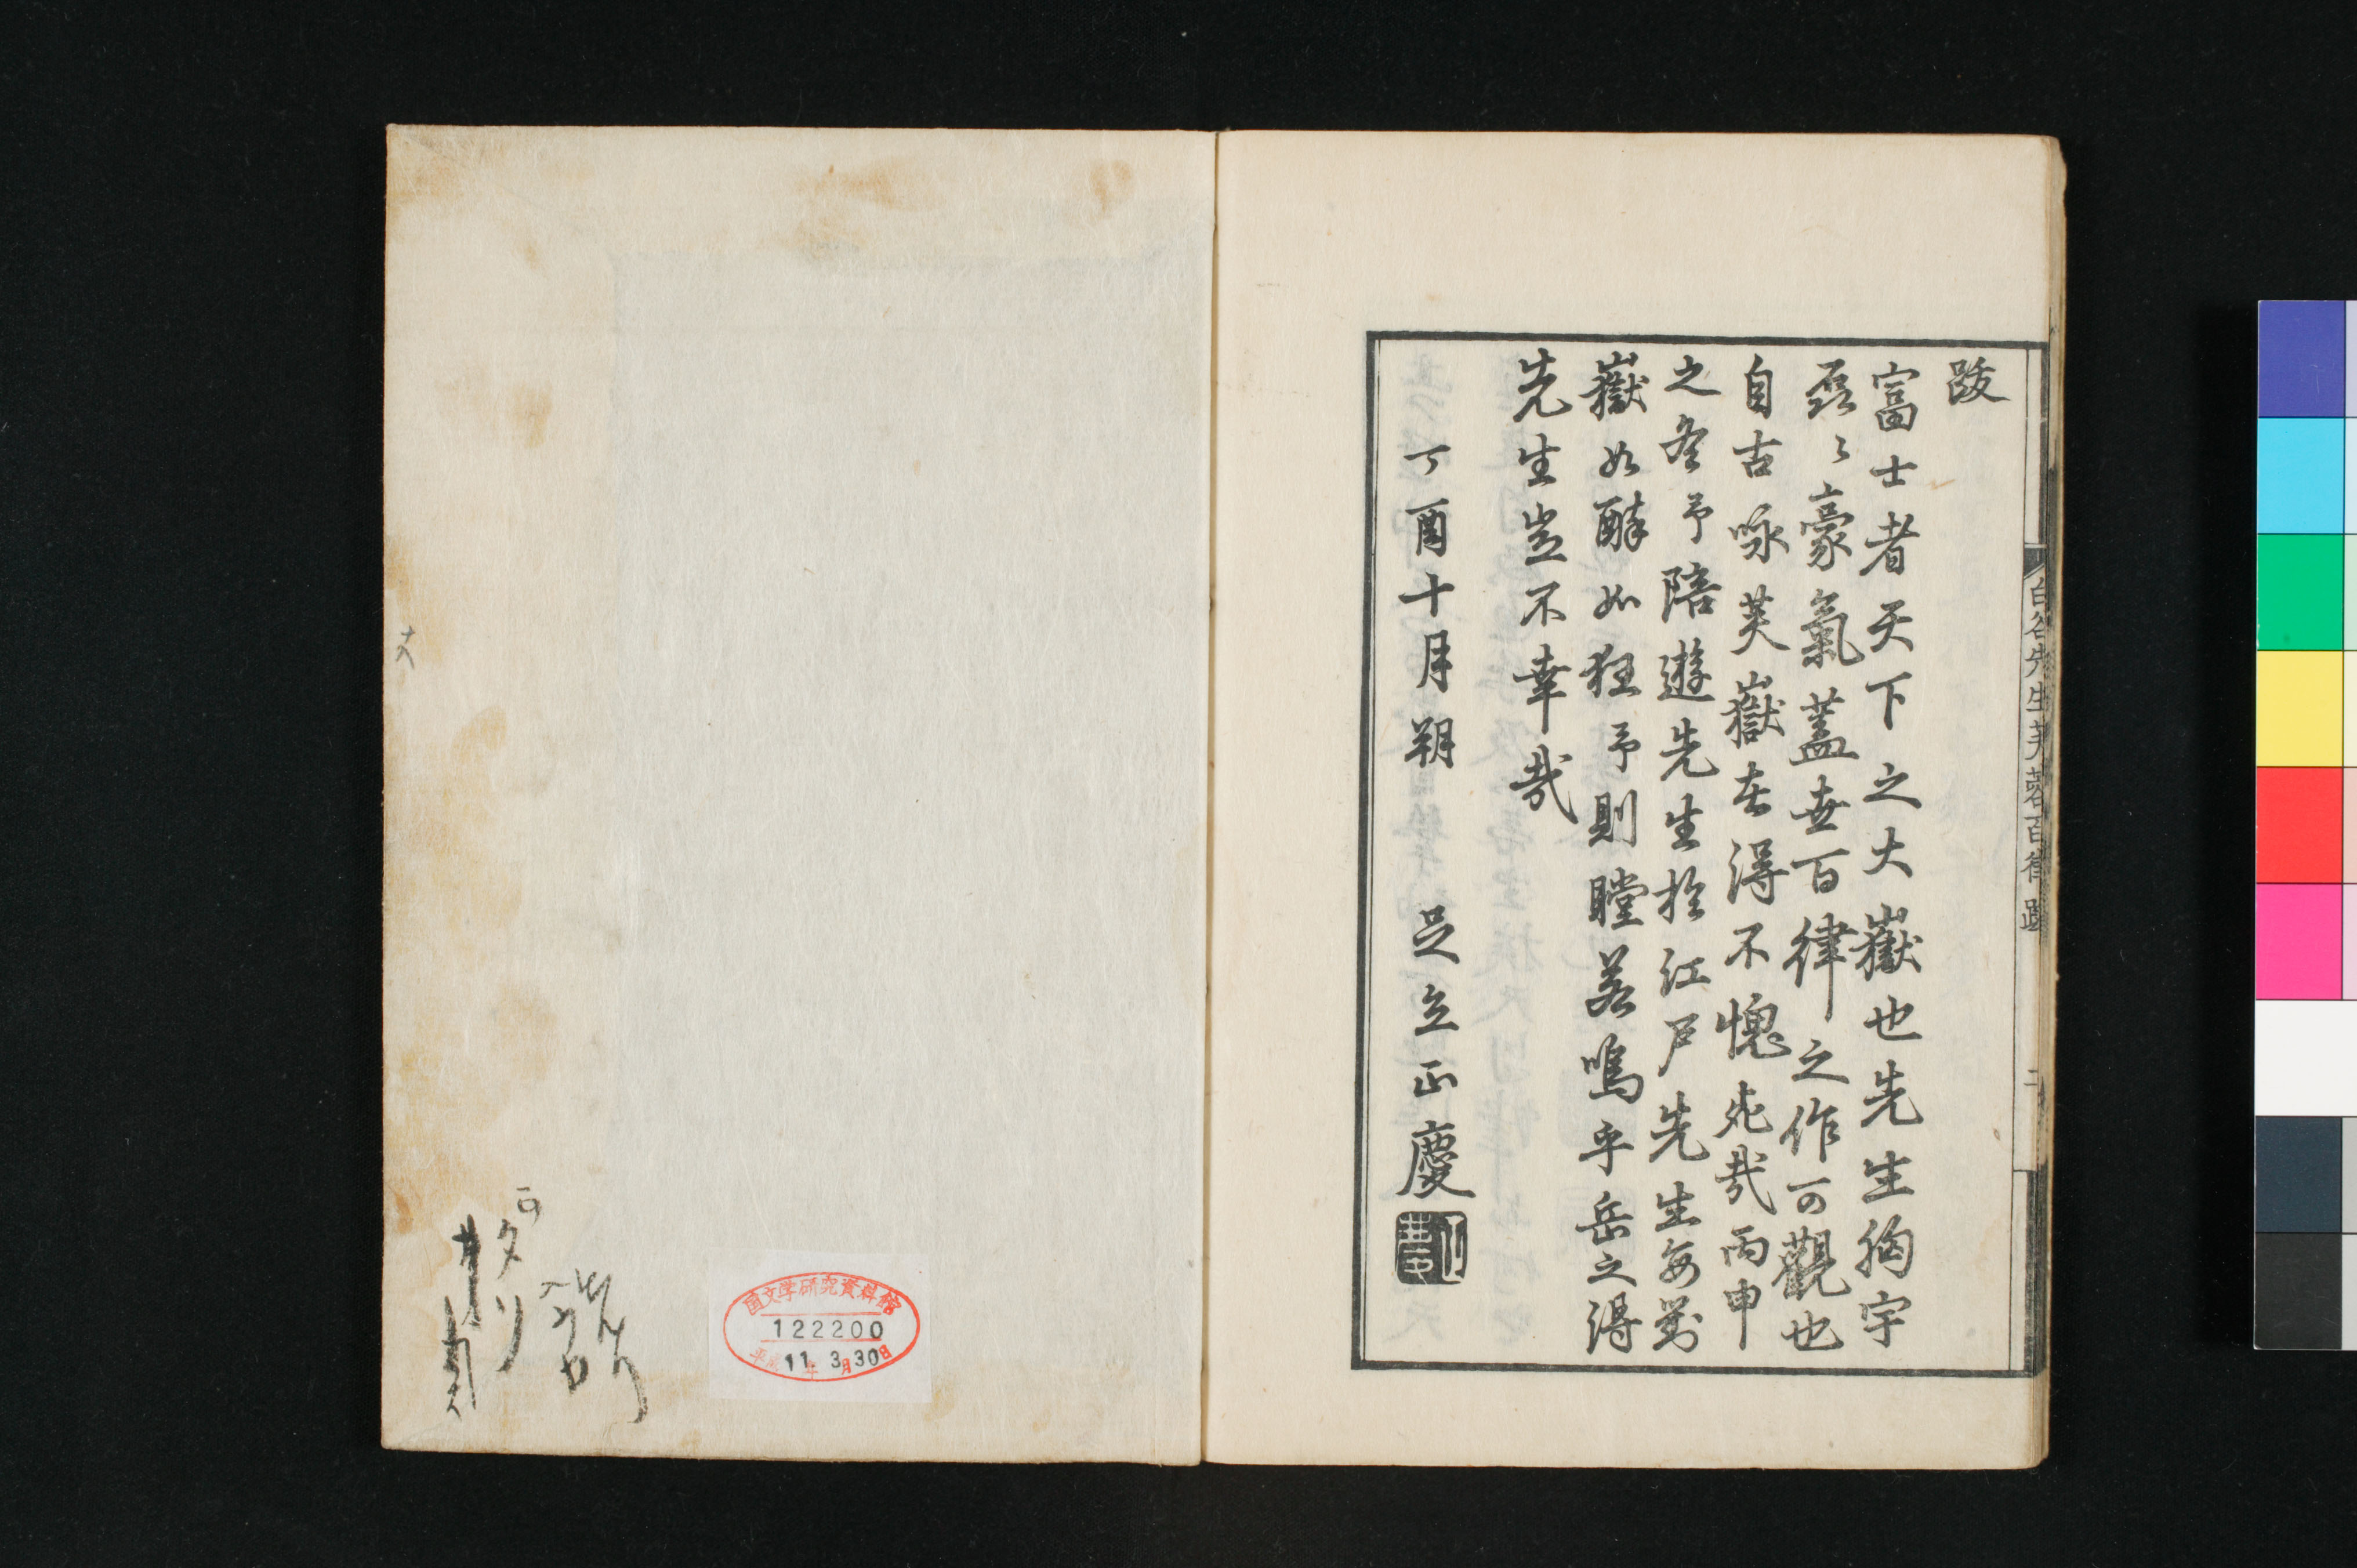 跋
富士者天下之大嶽也先生胸宇
磊々豪氣蓋世百律之作可觀也
自古咏芙嶽者得不愧死哉丙申
之冬予陪遊先生於江戸先生每對
嶽如醉如狂予則瞠若嗚乎岳之得
先生豈不幸哉
丁酉十月朔　足立正慶
白谷先生芙蓉百律 跋 二
国文学研究資料館
122200
平成11年3月30日